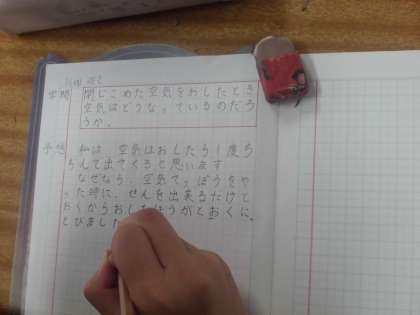 学問
閉じこめた空気をおしたとき
空気はどうなっているのだろ
うか。
予想 私は、空気はおしたら1度ち
ぢんで出てくると思います
なぜなら、空気でっぽうをや
った時に、せんを出来るだけと
おくからおしたほうがとおくに、
とびました